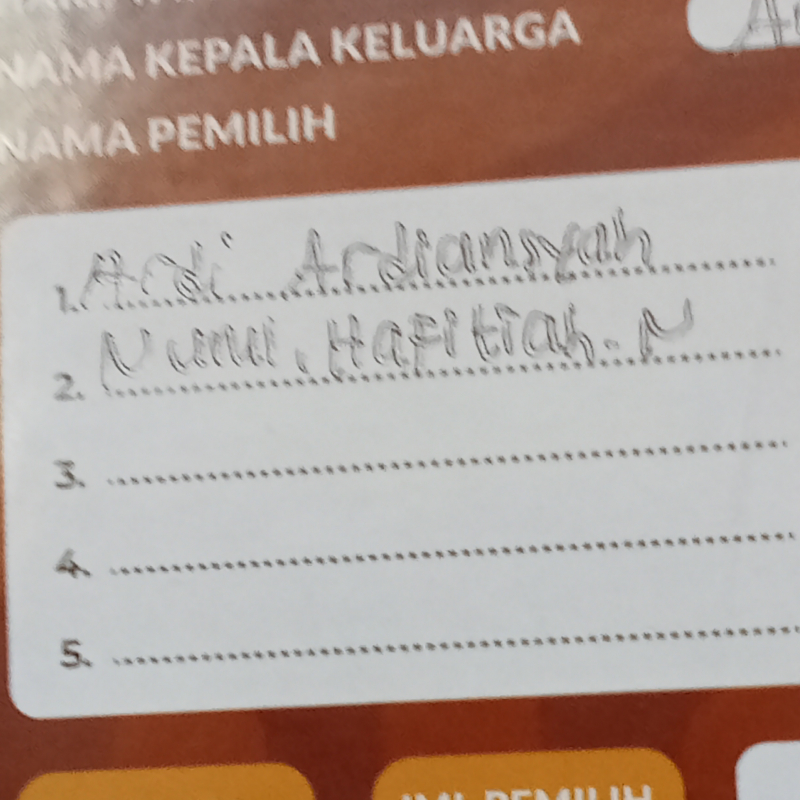 NAMA KEPALA KELUARGA
NAMA PEMILIH
1. Ardi Ardiansyah
2. Nurul. Hafitiah. N
3.
4.
5.
PEMILIH